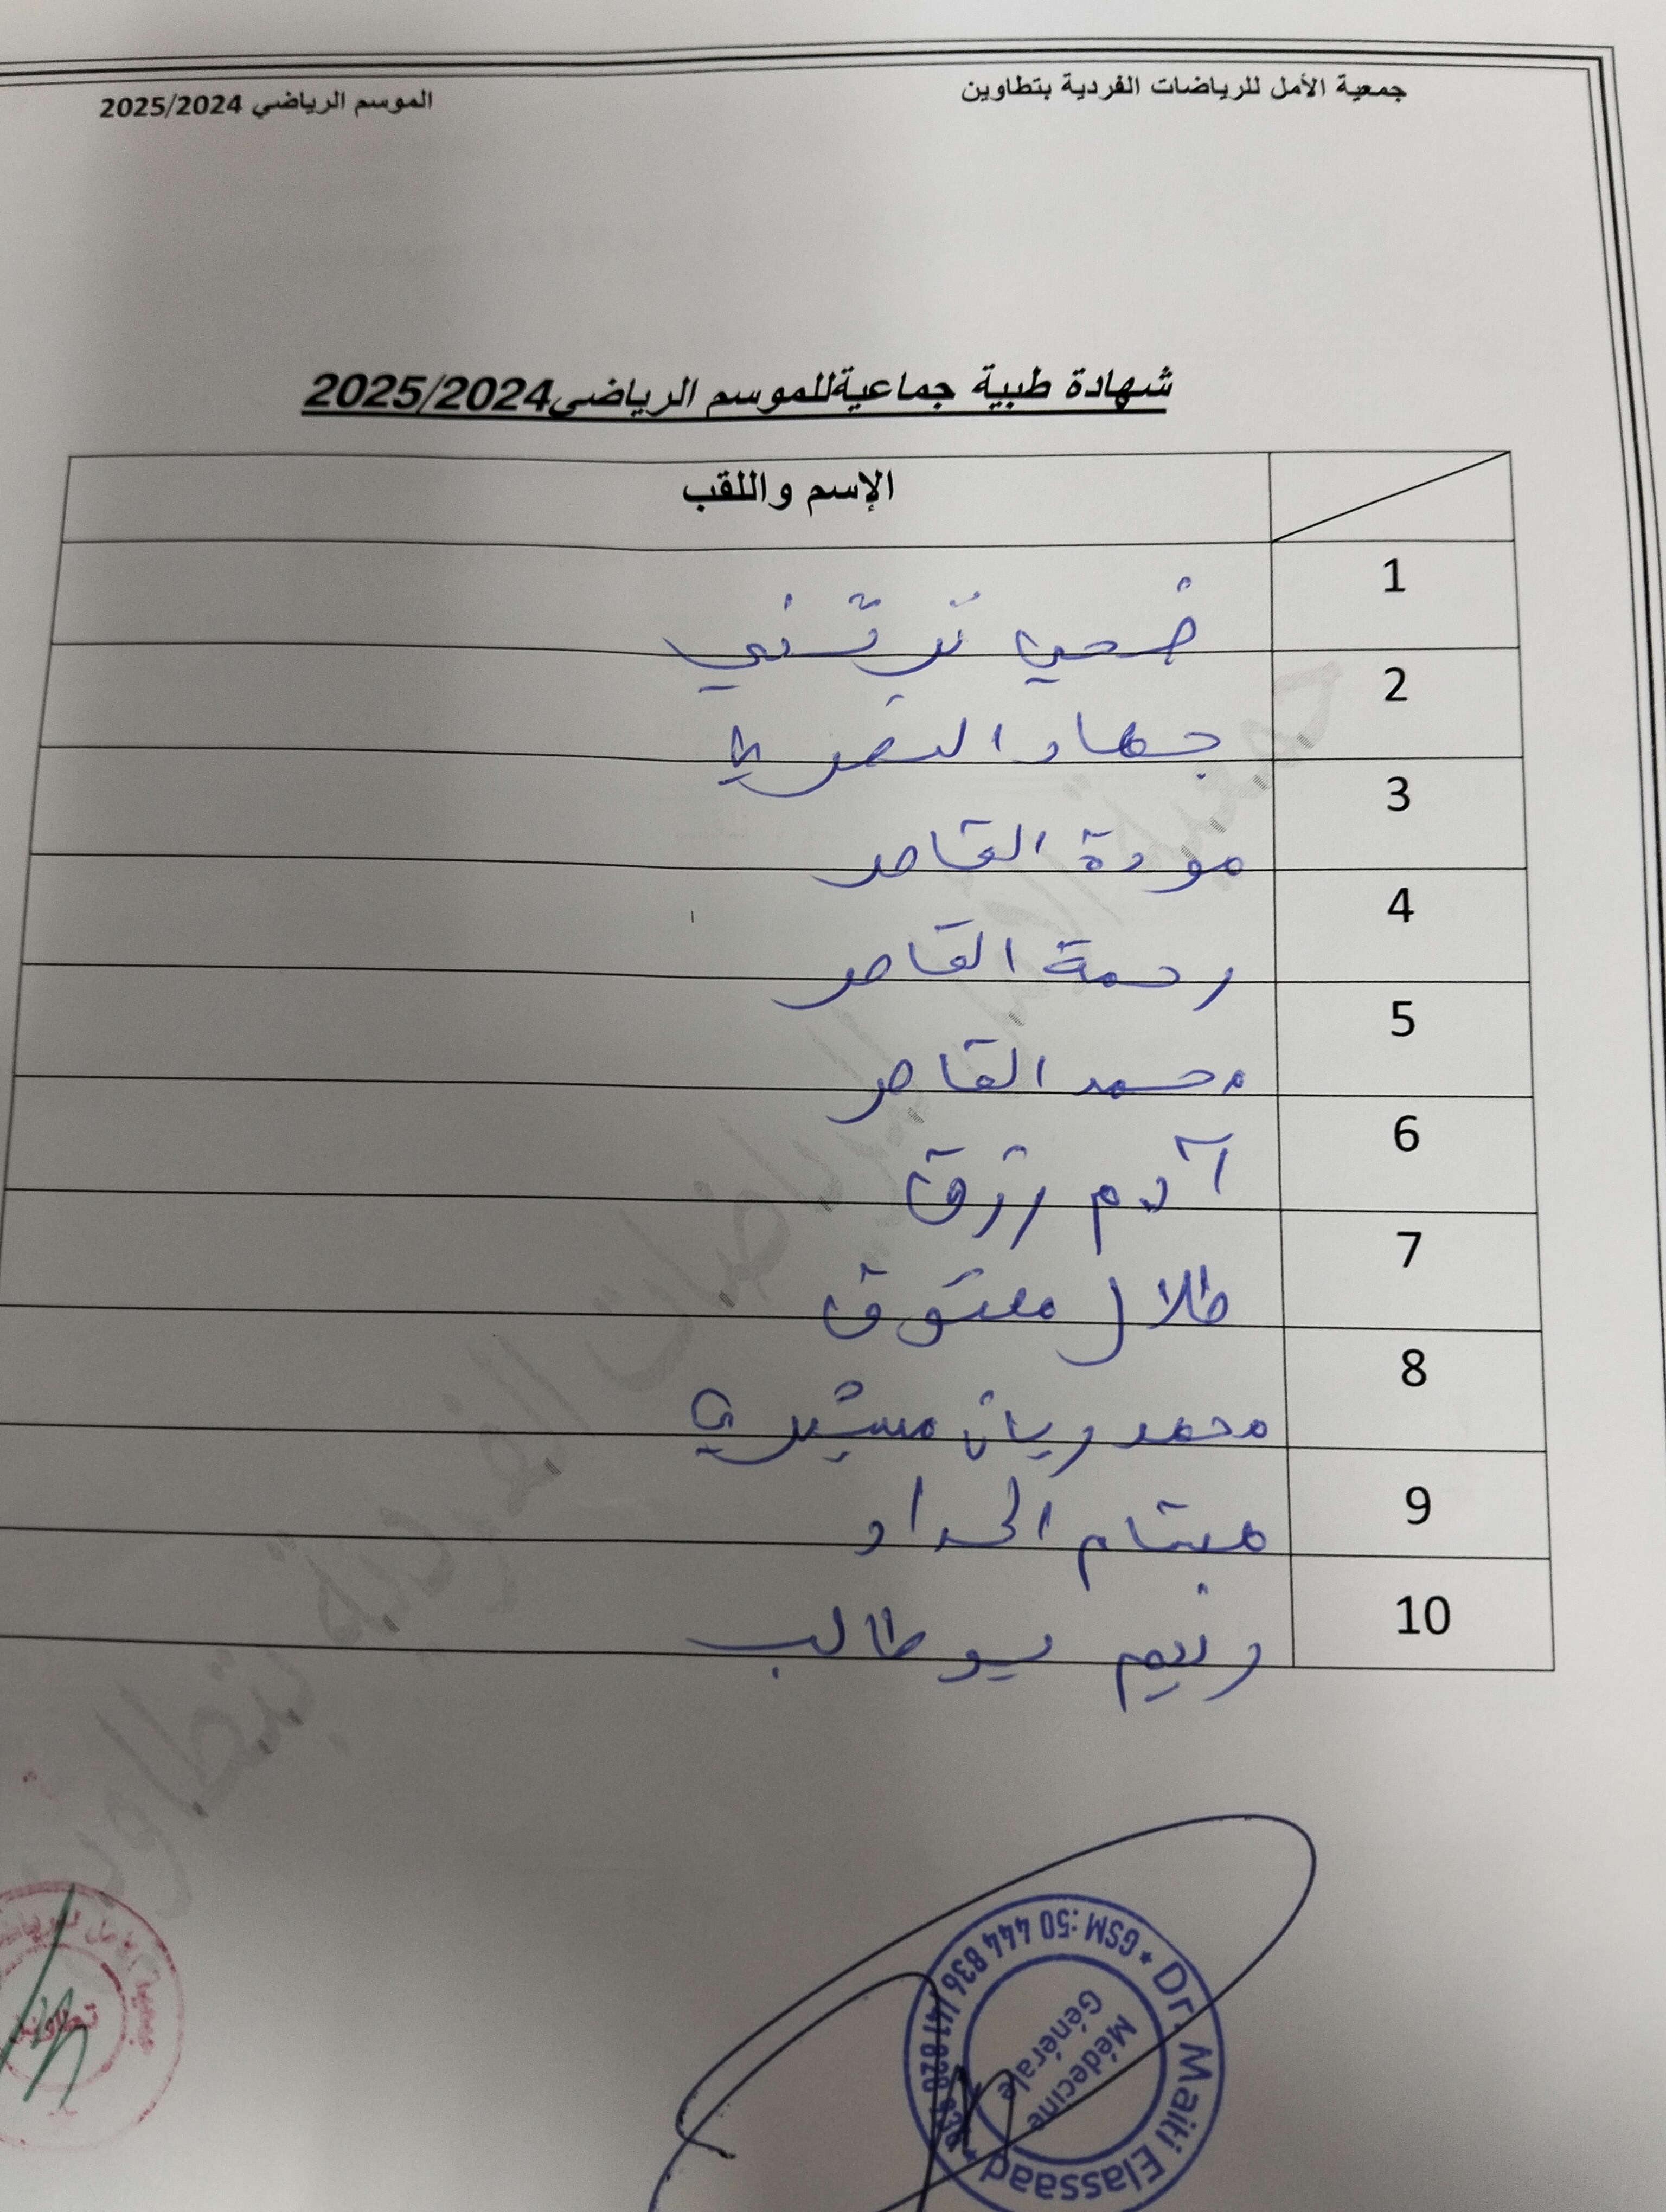 جمعية الأمل للرياضات الفردية بتطاوين
الموسم الرياضي 2025/2024
شهادة طبية جماعيةللموسم الرياضي2025/2024
الإسم واللقب
1 ضحى
2 جهاد النصري
3 مودة القاصر
4 رحمة القاصر
5 محمد القاصر
6 آدم رزق
7 طلال معتوق
8 محمد ريان مشيري
9 الحداد
10 بوطالب
جمعية الأمل للرياضات الفردية بتطاوين
Dr. Maiti Elassaad
Médecine
Générale
GSM :50 444 836
تطاوين